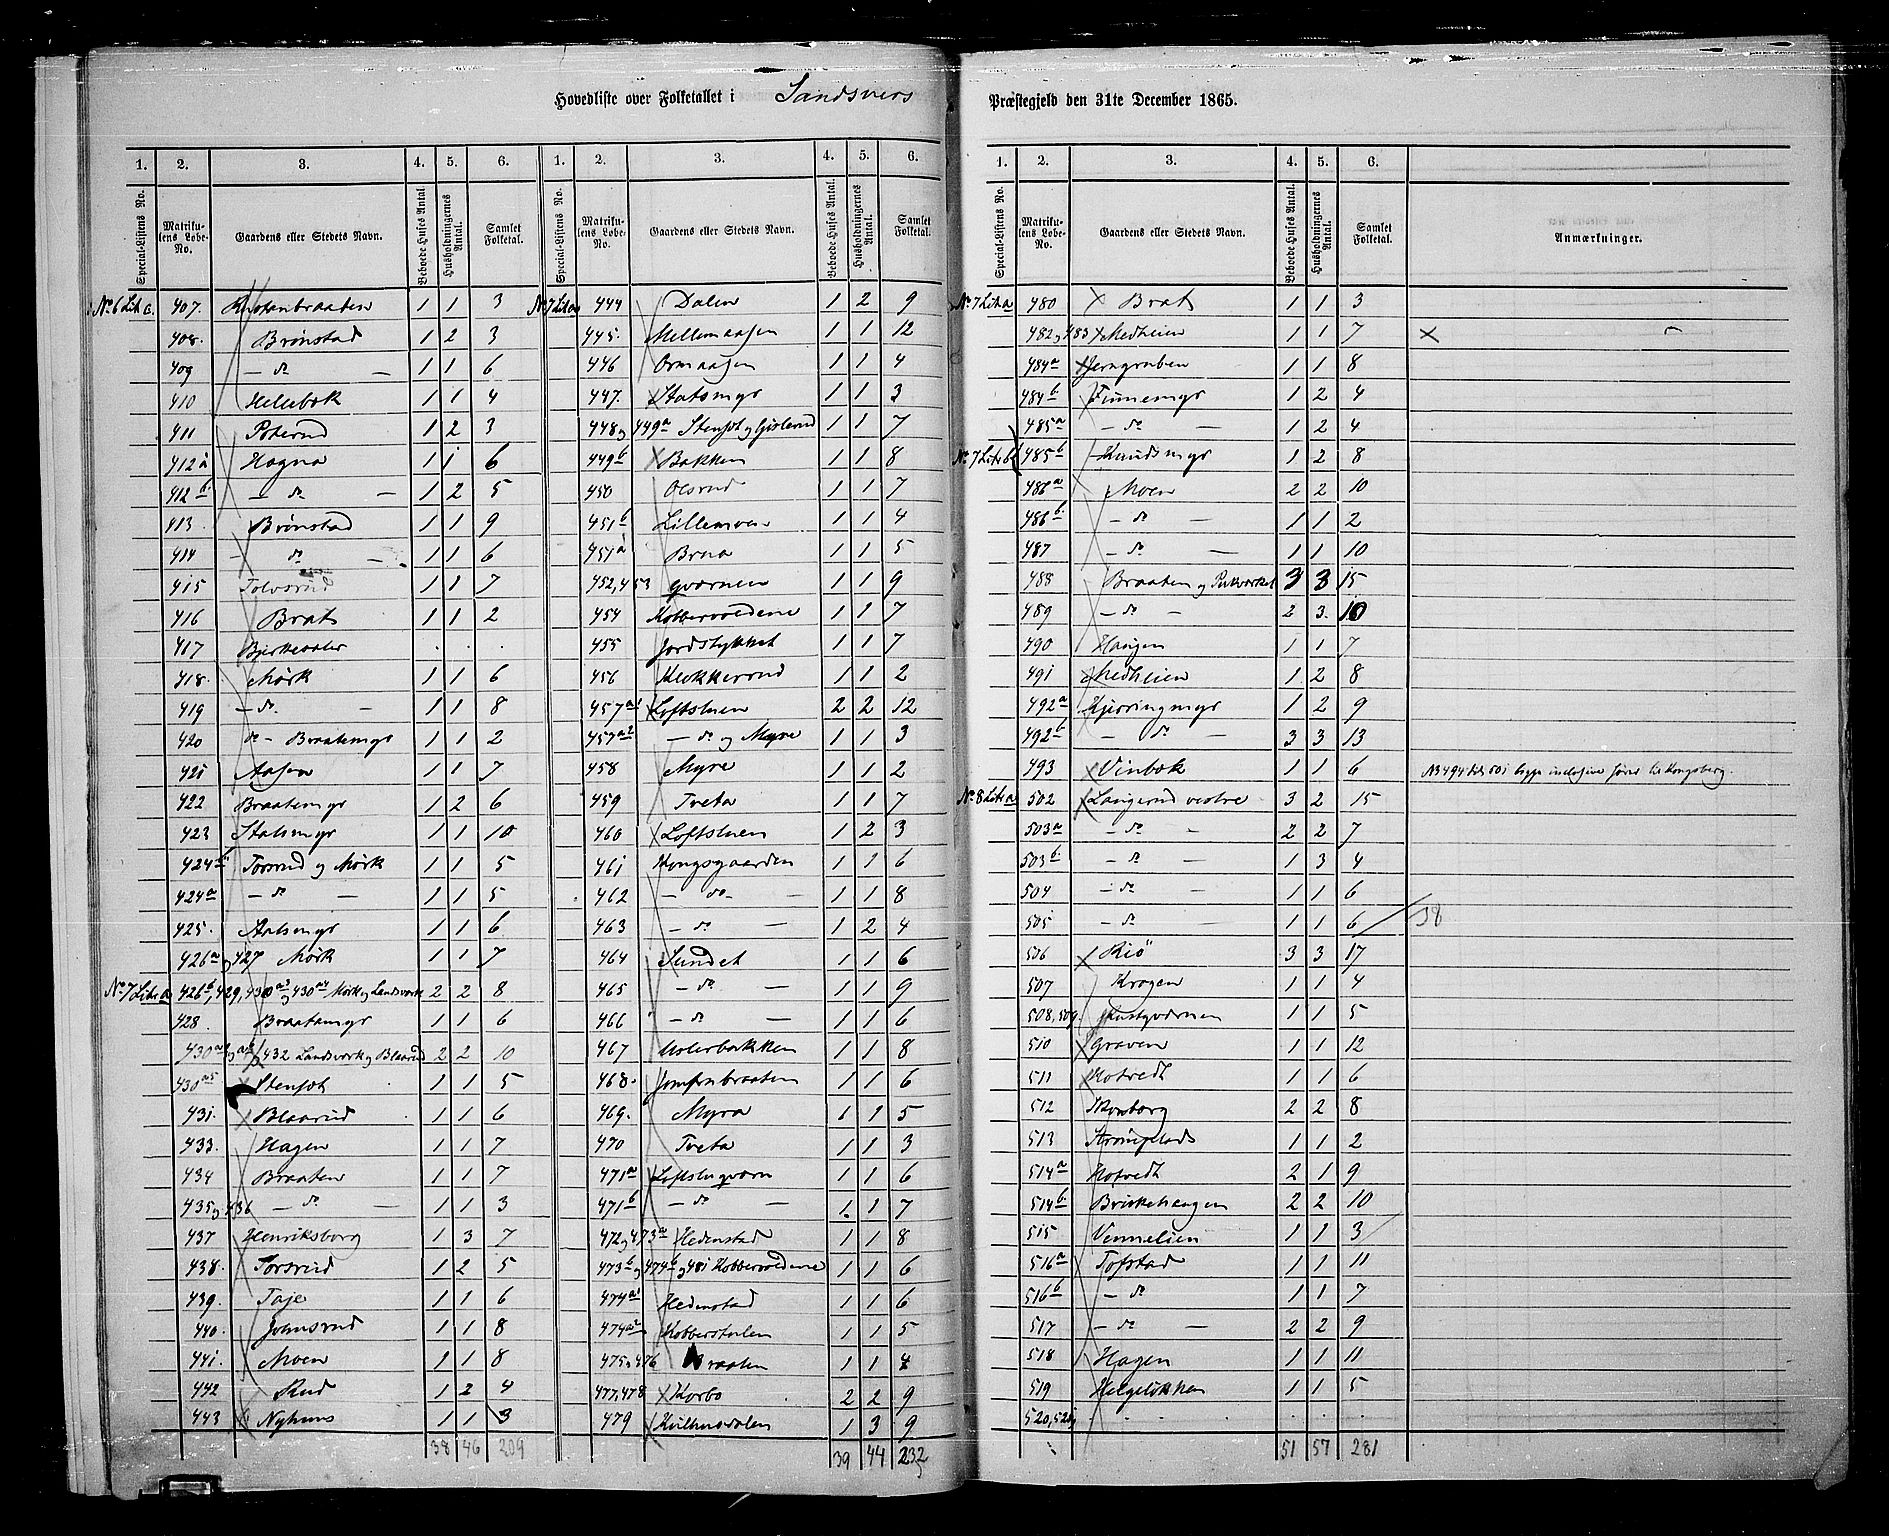 Hovedliste over Folketallet i Sandsvers Præstegjeld den 31te December 1865.
1. 2. 3. 4. 5. 6. 1. 2. 3. 4. 5. 6.
Special-Listens No. Matrikulens Løbe-No. Gaardens eller Stedets Navn. Beboede Huses Antal. Husholdningernes Antal. Samlet Folketal. Special-Listens No. Matrikulens Løbe-No. Gaardens eller Stedets Navn. Beboede Huses Antal. Husholdningernes Antal. Samlet Folketal.
No. 6 Litr a. 407. 1 1 3
408. Brønstad 1 2 3
409 — do — 1 1 6
410 Hellebek 1 1 4
411 Poterud 1 2 3
412 a Hagna 1 1 6
412 b. — do — 1 2 5
413. Brønstad 1 1 9
414 — do — 1 1 6
415 Tolvsrud 1 1 7
416 Brats 1 1 2
417 . . .
418. Mørk 1 1 6
419 — do. — 1 1 8
420 do - Braatemyr 1 1 2
421 Aasen 1 1 7
422 Braatemyr 1 2 6
423 Stalsmyr 1 1 10
424 b Torsrud og Mørk 1 1 5
424 a — do — 1 1 5
425. 1 1 6
426 a og 427 Mørk 1 1 7
No. 7 Litr a 426 b, 429, 430 a3 og 430 a4 Mørk og Landsverk 2 2 8
428. Braatemyr 1 1 6
432 Landsverk og Blaarud 2 2 10
430 a5 Stenset 1 1 5
431. Blaarud 1 1 6
433. Hagen 1 1 7
434 Braaten 1 1 7
435 og 436 — do — 1 1 3
437 Henriksborg 1 3 7
438. Torsrud 1 2 5
439. Taje 1 1 6
440. Johnsrud 1 1 8
441. Moen 1 1 8
442 Rud 1 2 4
443 Nyhuus 1 1 3
38 46 209
No. 7 Litr a 444 Dalen 1 2 9
445. Mellemaasen 1 1 12
446 Ormaasen 1 1 4
447. Statsmyr 1 1 3
448 og 449 a Stenset og Gislerud 1 1 7
449 b Bakken 1 1 8
450 Olsrud 1 1 7
451 b Lillemoen 1 1 4
451 a Braa 1 1 5
452, 453 Qværnen 1 1 9
454 Kobbervoldene 1 1 7
455 Jordstykket 1 1 7
456 Klokkerud 1 1 2
457 a1 Loftsluen 2 2 12
457 a2 — do og Myre 1 1 3
458 Myre 1 1 2
459 Tveta 1 1 7
460 Loftsluen 1 2 3
461 Kongsgaarden 1 1 6
462 — do — 1 1 8
463 — do — 1 2 4
464 Sundet 1 1 6
465 — do — 1 1 9
466 — do — 1 1 6
467 1 1 8
468. Jomfrubraaten 1 1 6
469. Myra 1 1 5
470 Tveta 1 1 3
471 a Loftslugværn 1 1 6
471 b — do — 1 1 7
472 og 473 a Hedenstad 1 1 8
473 b og 474 b og 481 Kobbervoldene 1 1 6
474 a1 Hedenstad 1 1 6
474 a2 Kobberstolen 1 1 5
475 og 476 Braaten 1 1 4
477, 478 Korbo 2 2 9
479 1 3 9
39 44 232
1. 2. 3. 4. 5. 6.
Special-Listens No. Matrikulens Løbe-No. Gaardens eller Stedets Navn. Beboede Huses Antal. Husholdningernes Antal. Samlet Folketal. Anmærkninger.
No. 7 Litr a 480 Brats 1 1 3
482 og 483 Medheien 1 1 7 ×
484 a Jerngruben 1 1 8
484 b Finnemyr 1 2 4
485 a — do — 1 2 4
No. 7 Litr b 485 b Knudsmyr 1 2 8
486 a Moen 2 2 10
486 b — do — 1 1 2
487 — do — 1 1 10
488 Braaten og 3 3 15
489 — do — 2 3 10
490 Haugen 1 1 7
491 Medheien 1 2 8
492 a Kjerringmyr 1 2 9
492 b — do — 3 3 13
493 Vinbek 1 1 6 No 494 til 501 begge inclusive føres til Kongsberg.
No. 8 Litr a 502 Langerud vestre 3 2 15
503 a — do — 2 2 7
503 b — do — 1 3 4
504 — do — 1 1 6
505 — do — 1 1 6 38
506 Riö 3 3 17
507 Kragen 1 1 4
508, 509. 1 1 5
510 Graven 1 1 12
511 Hotvedt 1 1 6
512 Skonborg 2 2 8
513 Strømplads 1 1 2
514 a Hotvedt 2 1 9
514 b Birkehaugen 2 2 10
515 Vennelien 1 1 3
516 a Tofstad 1 1 11
516 b — do 1 1 7
517 — do — 2 2 9
518 Hagen 1 1 11
519 Helgeløkken 1 1 5
520, 521 . . .
51 57 281